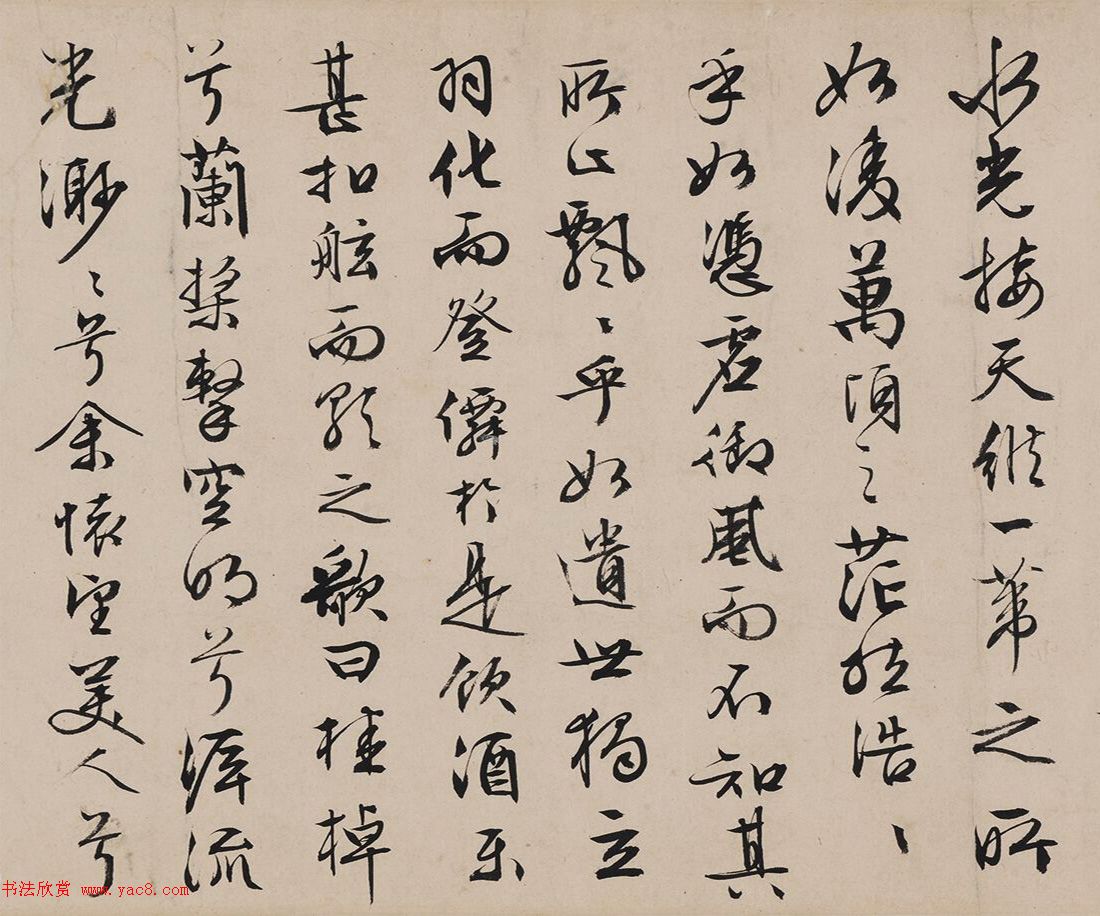 水光接天縱一葦之所
如凌萬頃之茫然浩〻
乎如憑虛御風而不知其
所止飄〻乎如遺世獨立
羽化而登僊於是飲酒樂
甚扣舷而歌之歌曰桂棹
兮蘭槳擊空明兮泝流
光渺〻兮余懷望美人兮
书法欣赏 www.yac8.com